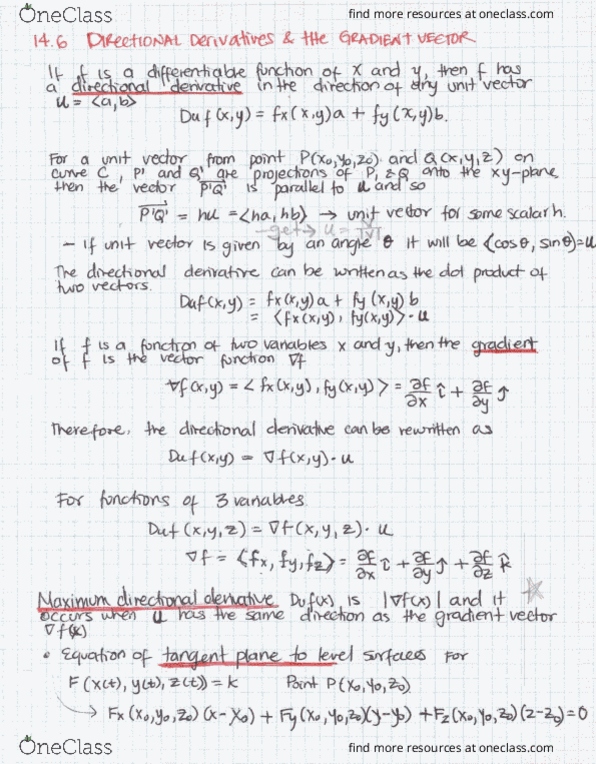 OneClass find more resources at oneclass.com
14.6 Directional Derivatives & the Gradient Vector
If f is a differentiable function of x and y, then f has
a directional derivative in the direction of any unit vector
u = <a,b>
Duf(x,y) = fx(x,y)a + fy(x,y)b.
For a unit vector from point P(x₀,y₀,z₀) and Q(x,y,z) on
curve C, P' and Q' are projections of P, & Q onto the xy-plane
then the vector P'Q' is parallel to u and so
P'Q' = hu = <ha, hb> → unit vector for some scalar h.
get → u =
- If unit vector is given by an angle θ it will be <cosθ, sinθ> = u
The directional derivative can be written as the dot product of
two vectors.
Duf(x,y) = fx(x,y)a + fy(x,y)b
= <fx(x,y), fy(x,y)> · u
If f is a function of two variables x and y, then the gradient
of f is the vector function ∇f
∇f(x,y) = <fx(x,y), fy(x,y)> = ∂f/∂x î + ∂f/∂y ĵ
Therefore, the directional derivative can be rewritten as
Duf(x,y) = ∇f(x,y) · u
For functions of 3 variables
Duf(x,y,z) = ∇f(x,y,z) · u
∇f = <fx, fy, fz> = ∂f/∂x î + ∂f/∂y ĵ + ∂f/∂z k̂
Maximum directional derivative Duf(x) is |∇f(x)| and it
occurs when u has the same direction as the gradient vector
∇f(x)
• Equation of tangent plane to level surfaces for
F(x(t), y(t), z(t)) = k Point P(x₀,y₀,z₀)
→ Fx(x₀,y₀,z₀)(x-x₀) + Fy(x₀,y₀,z₀)(y-y₀) + Fz(x₀,y₀,z₀)(z-z₀) = 0
OneClass find more resources at oneclass.com